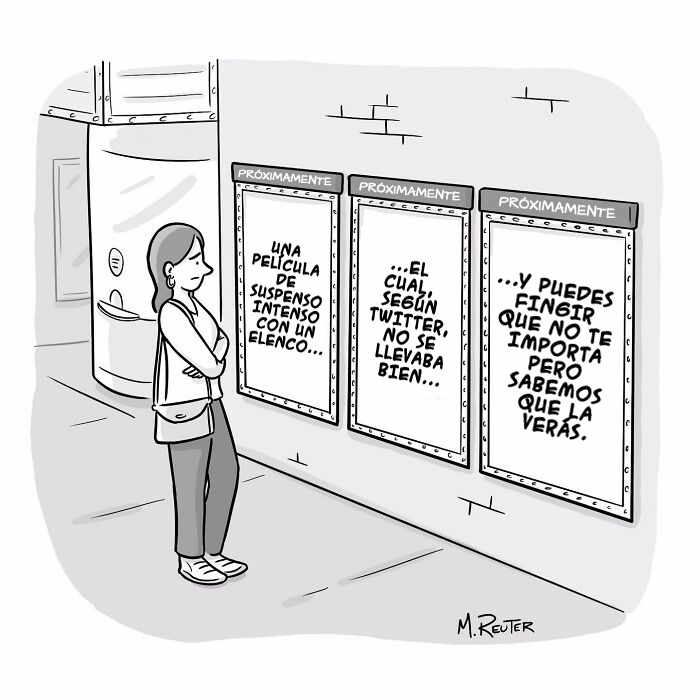 PRÓXIMAMENTE
UNA
PELÍCULA
DE
SUSPENSO
INTENSO
CON UN
ELENCO...
PRÓXIMAMENTE
...EL
CUAL,
SEGÚN
TWITTER,
NO SE
LLEVABA
BIEN...
PRÓXIMAMENTE
...Y PUEDES
FINGIR
QUE NO TE
IMPORTA
PERO
SABEMOS
QUE LA
VERÁS.
M. REUTER